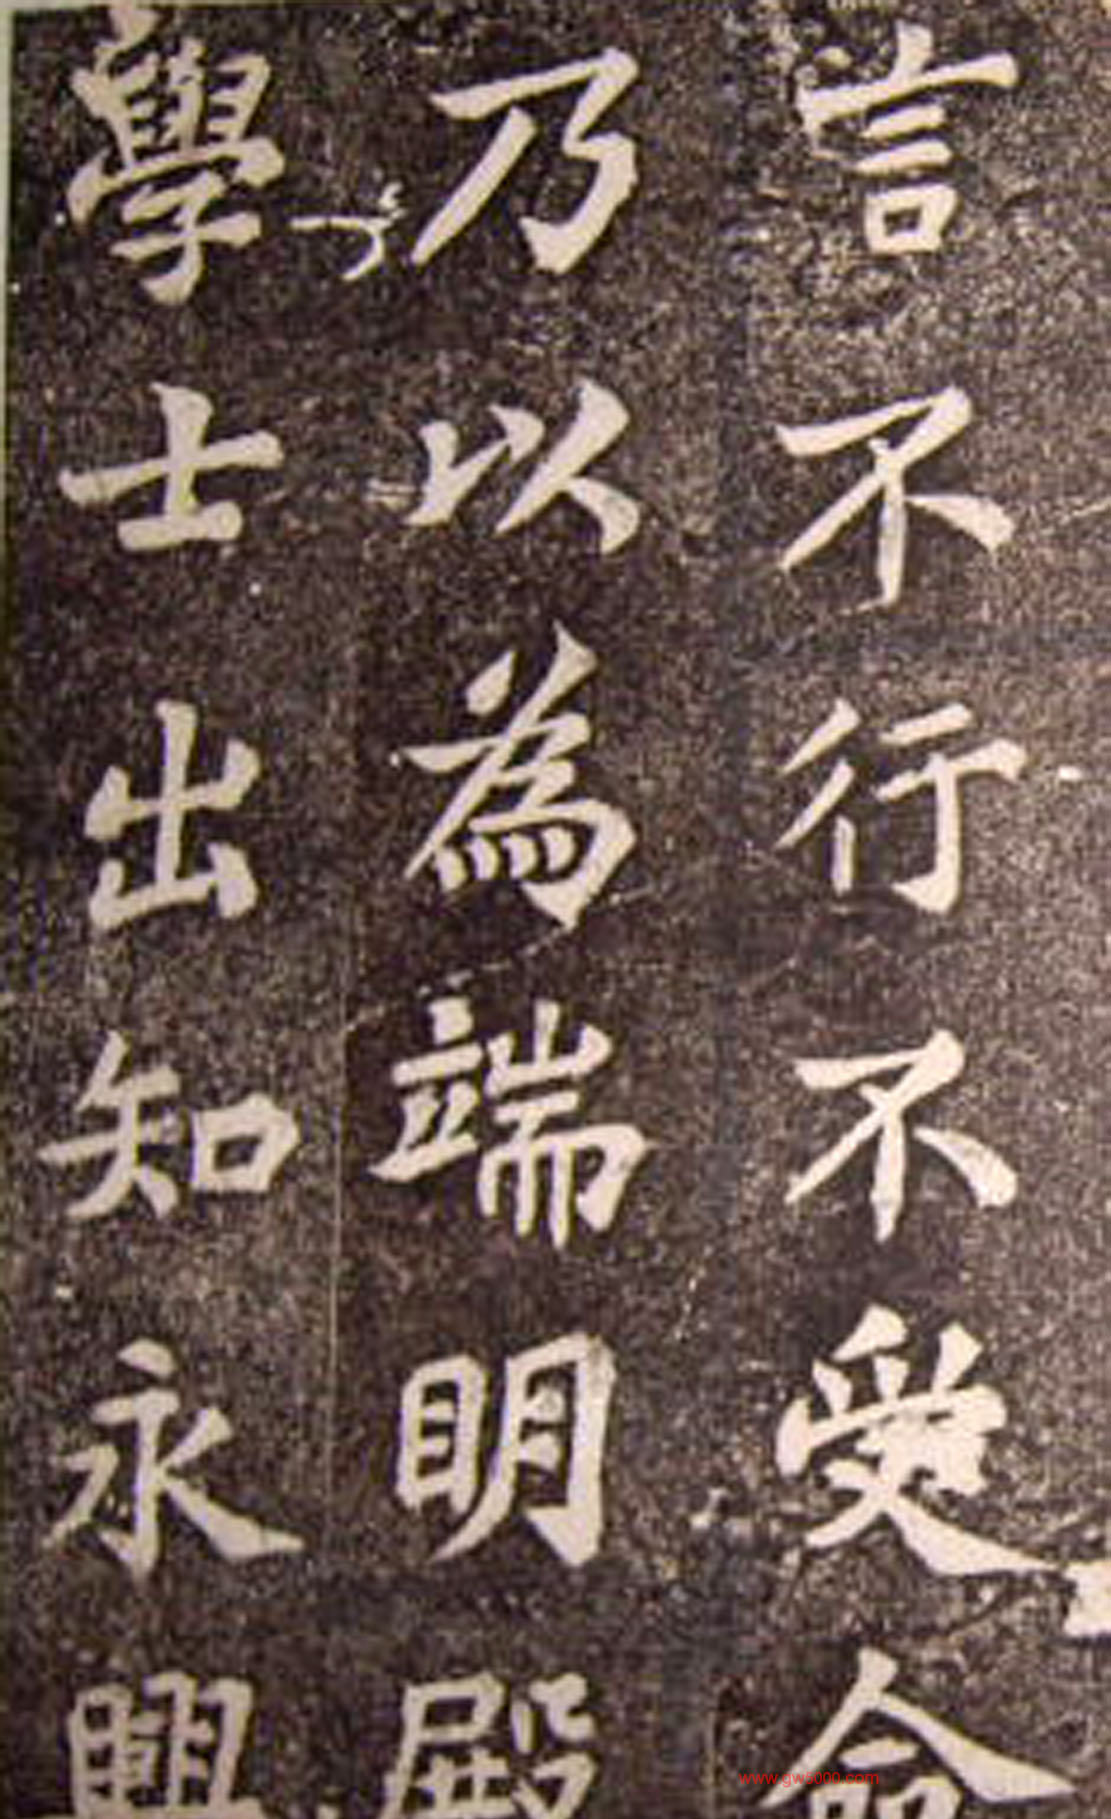 言不行不受命
乃以為端明殿
學士出知永興
www.gws000.com